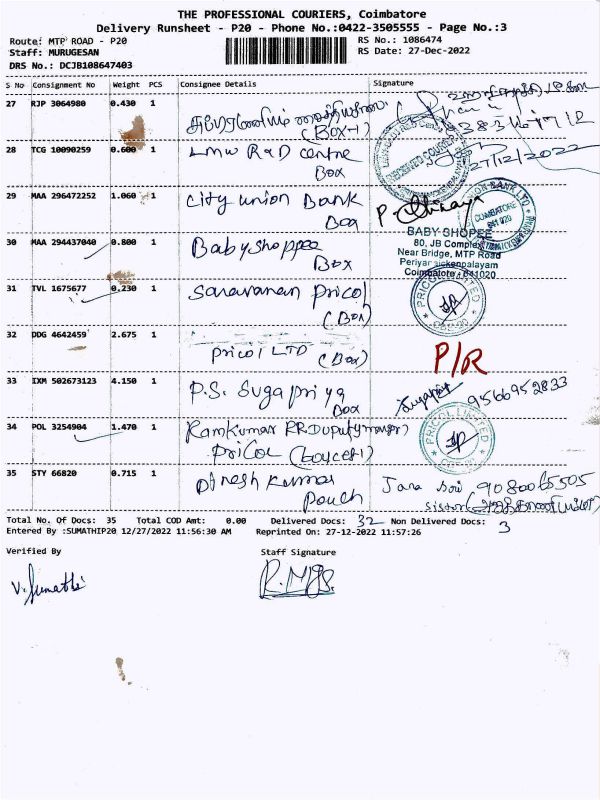 THE PROFESSIONAL COURIERS, Coimbatore
Delivery Runsheet - P20 - Phone No.:0422-3505555 - Page No.:3
Route: MTP ROAD - P20 RS No.: 1086474
Staff: MURUGESAN RS Date: 27-Dec-2022
DRS No.: DCJB108647403
S No Consignment No Weight PCS Consignee Details Signature
27 RJP 3064980 0.430 1
(BOX-1)
28 TCG 10090259 0.600 1 LMW R&D Centre
Box 27/12/2022
29 MAA 296472252 1.060 1 City union Bank
Box
COIMBATORE
641 020
30 MAA 294437040 0.800 1 Babyshoppee
Box
BABY SHOPEE
80, JB Complex
Near Bridge, MTP Road
Periyanaickenpalayam
Coimbatore - 641020
31 TVL 1675677 0.230 1 Saravanan pricol
(Box)
PRICOL LIMITED
CBE-20
32 DDG 4642459 2.675 1
pricol LTD (Box) P/R
33 IXM 502673123 4.150 1 P.S. Sugapriya
Box 9566952833
34 POL 3254904 1.470 1 Ramkumar
PriCOL
PRICOL LIMITED
CBE-20
35 STY 66820 0.715 1 Dinesh Kumar
Pouch
9080065505
Sister
Total No. Of Docs: 35 Total COD Amt: 0.00 Delivered Docs: 32 Non Delivered Docs: 3
Entered By :SUMATHIP20 12/27/2022 11:56:30 AM Reprinted On: 27-12-2022 11:57:26
Verified By Staff Signature
V. Sumathi